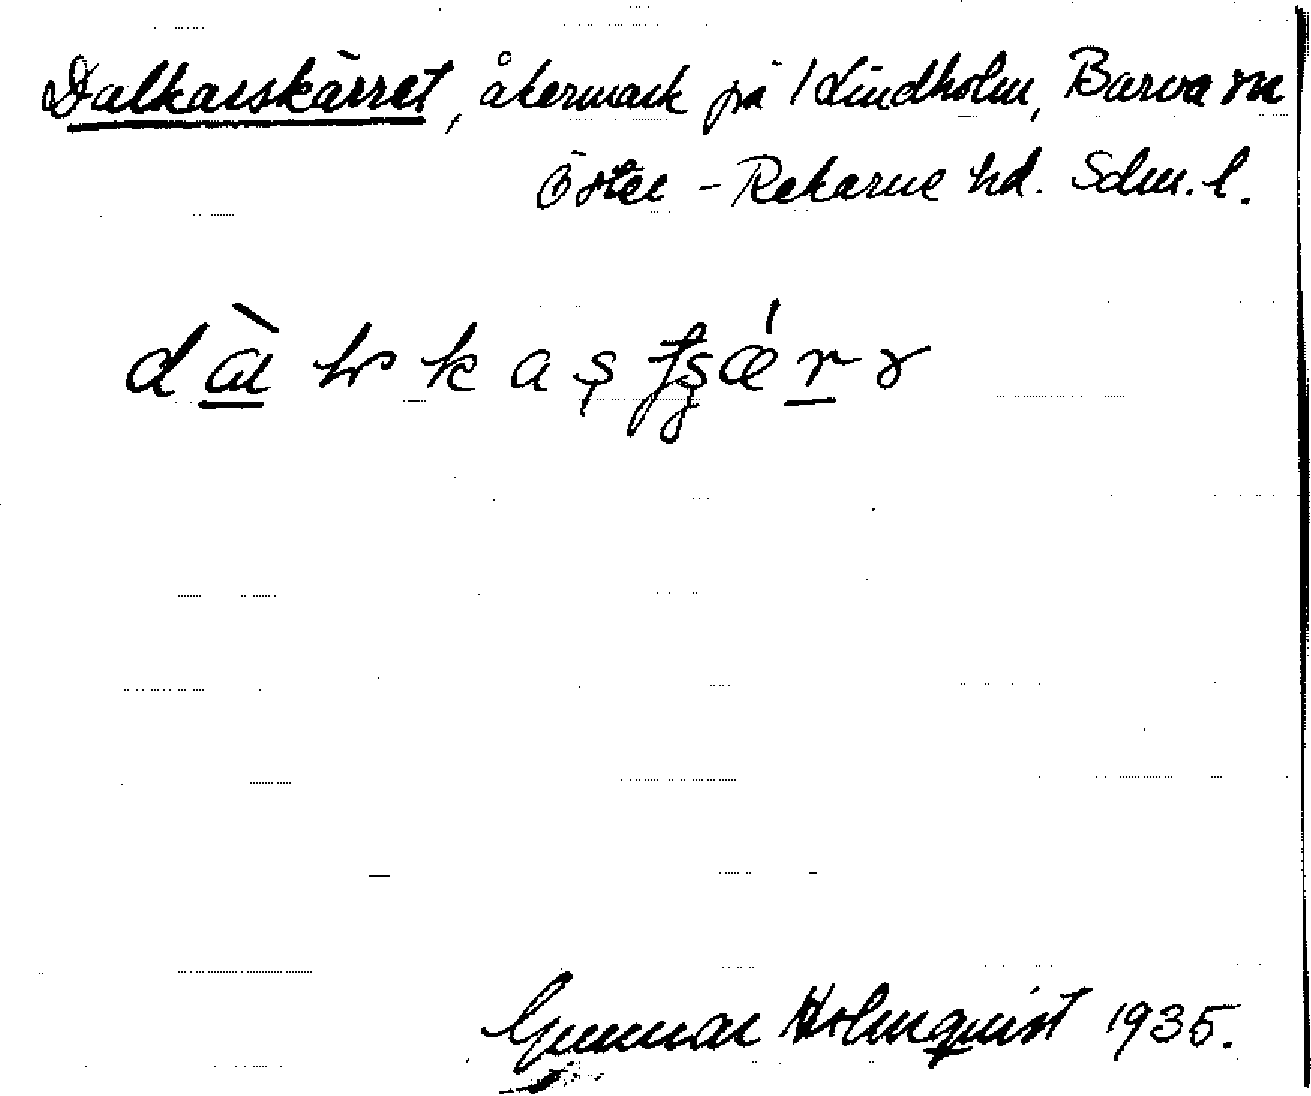 Dalkarskärret, åkermark på /Lindholm, Barva sn
Öster-Rekarne hd. Sdm. l.
Gunnar Holmquist 1935.